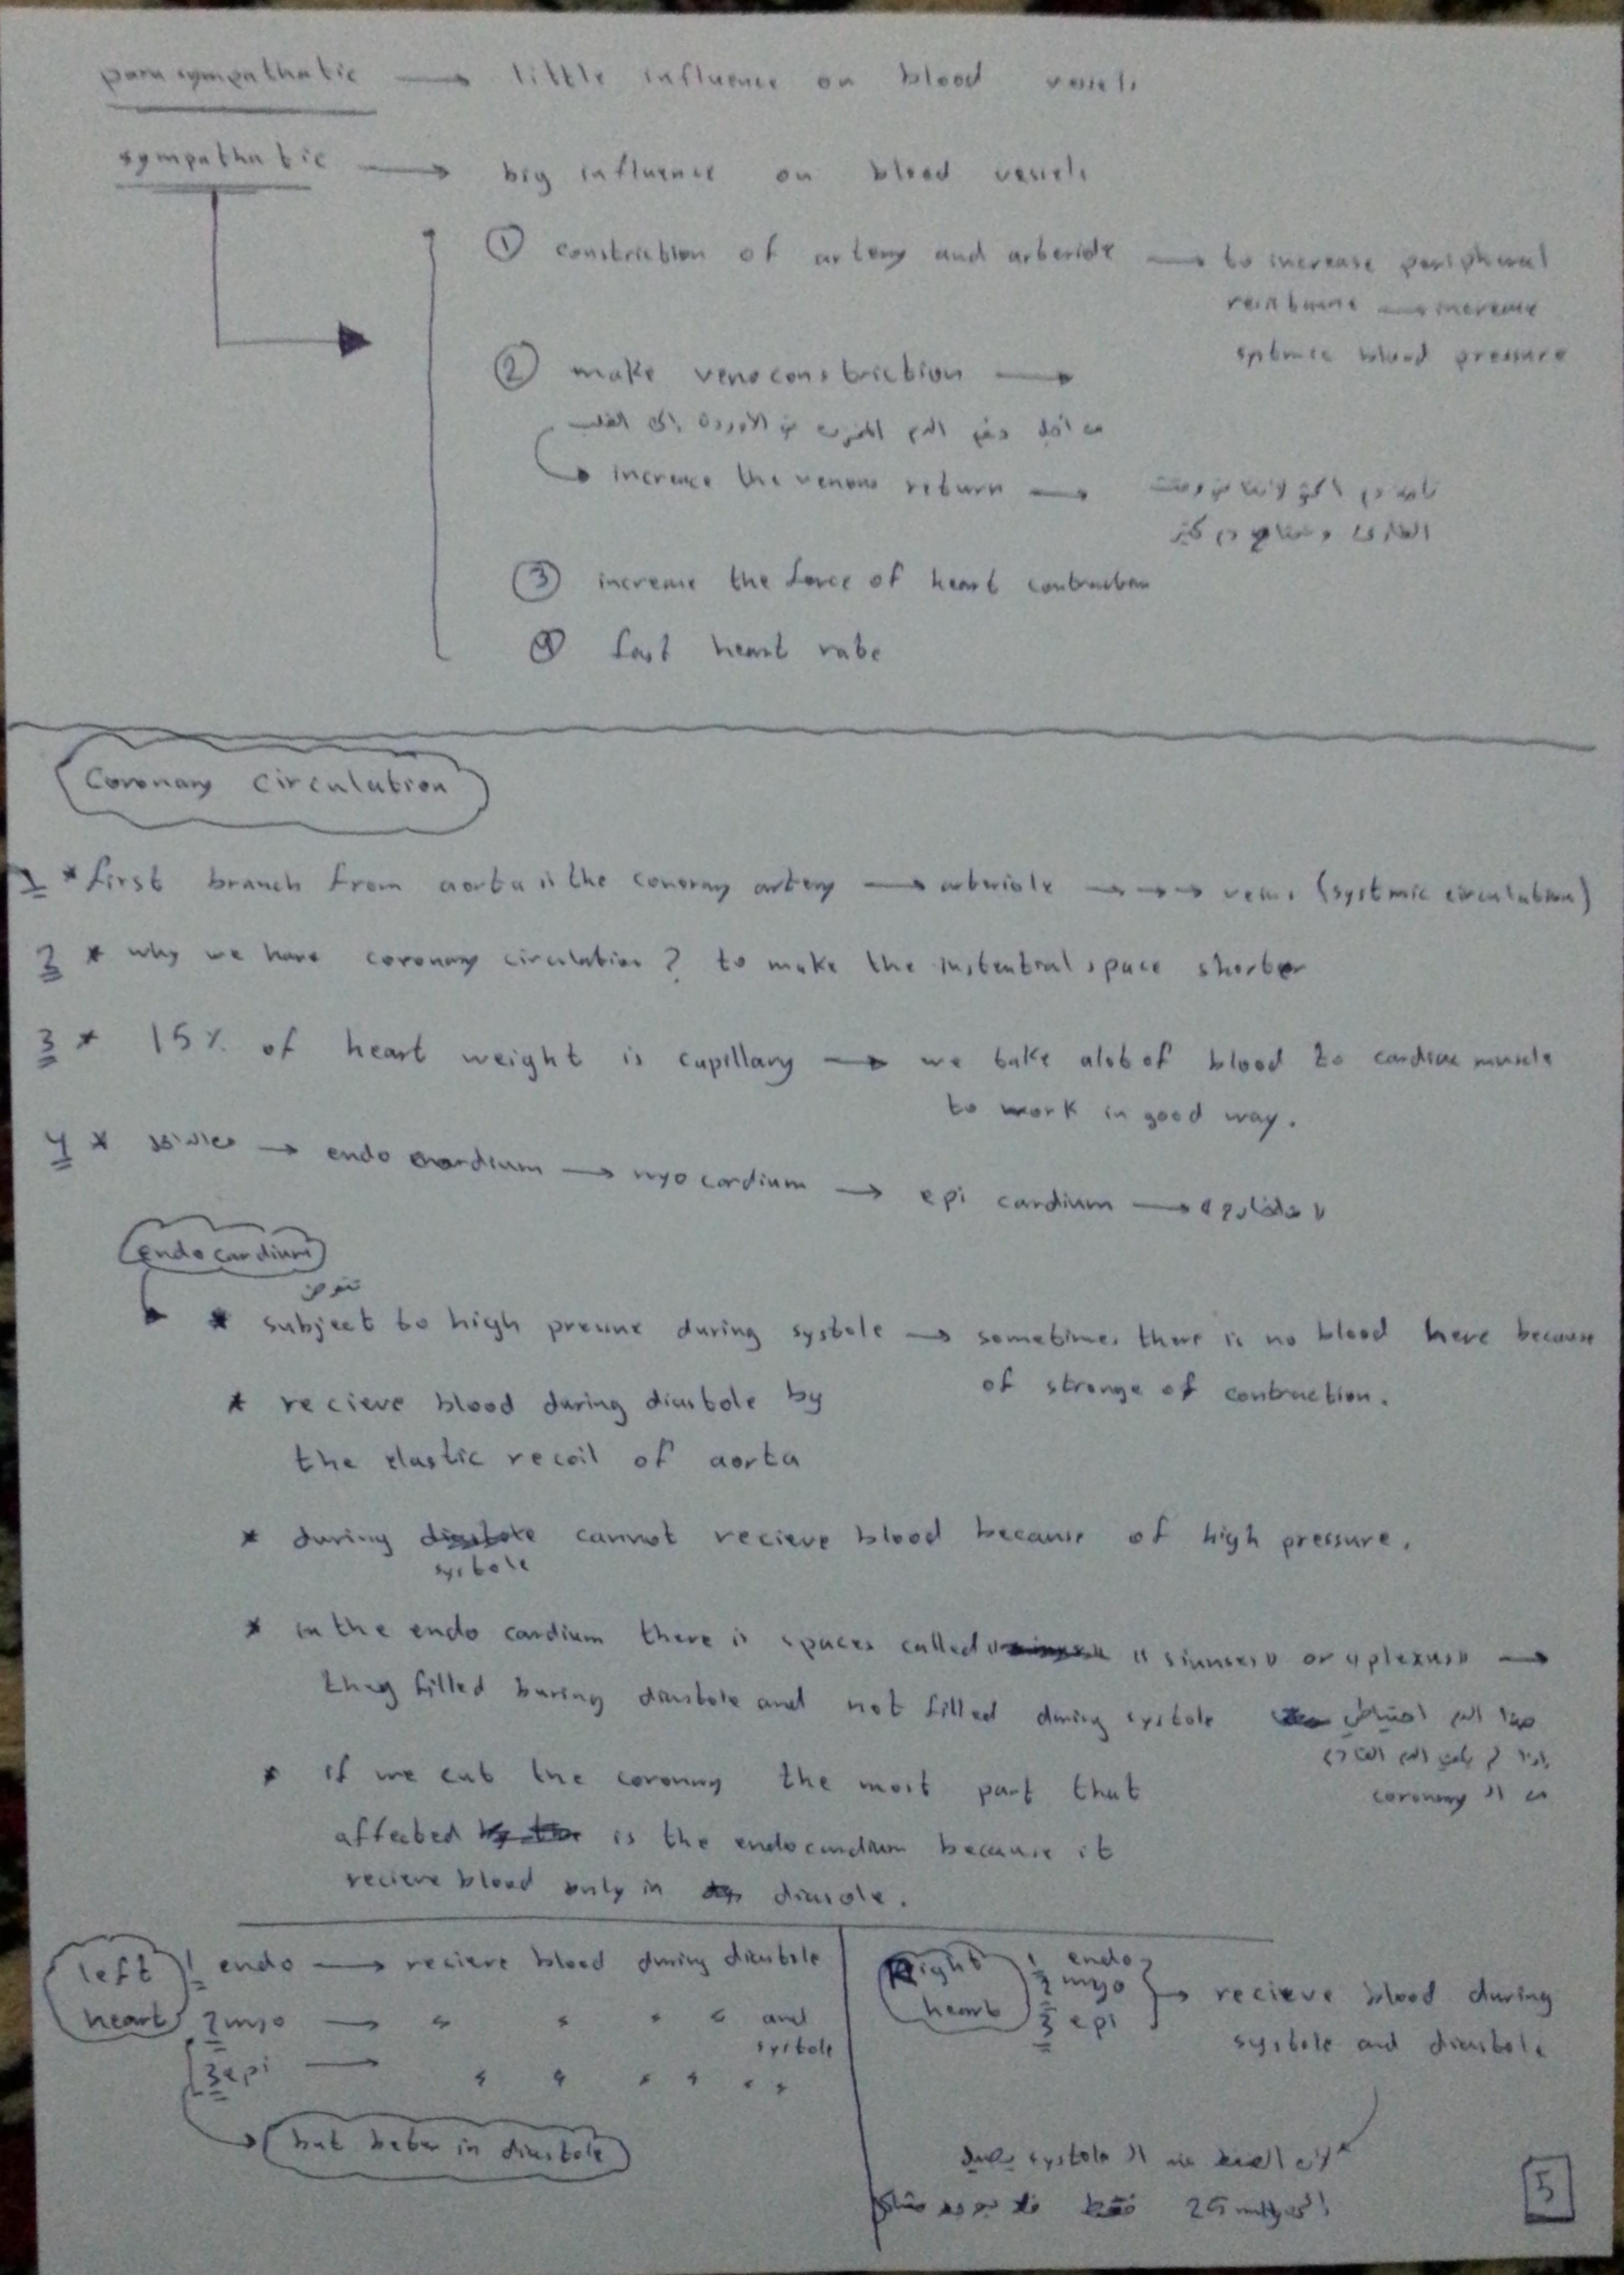 parasympathatic → little influence on blood vessels
sympathatic → big influence on blood vessels
① constriction of artery and arteriole → to increase peripheral
→ increase
blood pressure
② make venoconstriction →
من اجل دفع الدم المخزون في الأوردة إلى القلب
increase the venous return →
③ increase the force of heart contraction
④ fast heart rate
Coronary circulation
1 * first branch from aorta is the coronray artery → arteriole → → → veins (systmic circulation)
2 * why we have coronary circulation ? to make the space shorter
3 * 15% of heart weight is capillary → we take alot of blood to cardiac muscle
to work in good way.
4 * → endo cardium → myo cardium → epi cardium →
endo cardium
* subject to high pressure during systole → sometimes there is no blood here because
of stronge of contraction.
* recieve blood during diastole by
the elastic recoil of aorta
* during diastole cannot recieve blood because of high pressure.
systole
* in the endo cardium there is spaces called " siunses " or " plexus " →
they filled during diastole and not filled during systole
هذا الدم احتياطي
اذا لم يأت الدم القادم
من الـ coronary
* if we cut the coronary the most part that
affected is the endocardium because it
recieve blood only in diasole.
left heart
1 endo → recieve blood during diastole
2 myo → " " " " and
systole
3 epi → " " " " " "
but beter in diastole
Right heart
1 endo
2 myo
3 epi
→ recieve blood during
systole and diastole
لان الـ عند الـ systole يصل
الى 25 mmHg فقط فلا يوجد مشكل
5